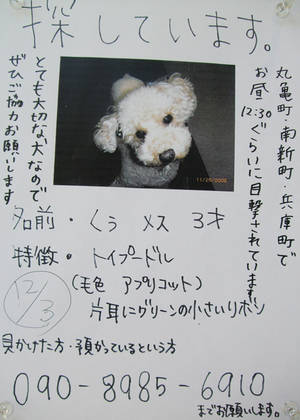 探しています。
丸亀町・南新町・兵庫町で
お昼12:30ぐらいに目撃されています
とても大切な犬なので
ぜひご協力お願いします
11/26/2005
名前・くぅ メス 3才
特徴・トイプードル
(毛色 アプリコット)
片耳にグリーンの小さいリボン
12/3
見かけた方・預かっているという方
090-8985-6910
までお願いします。